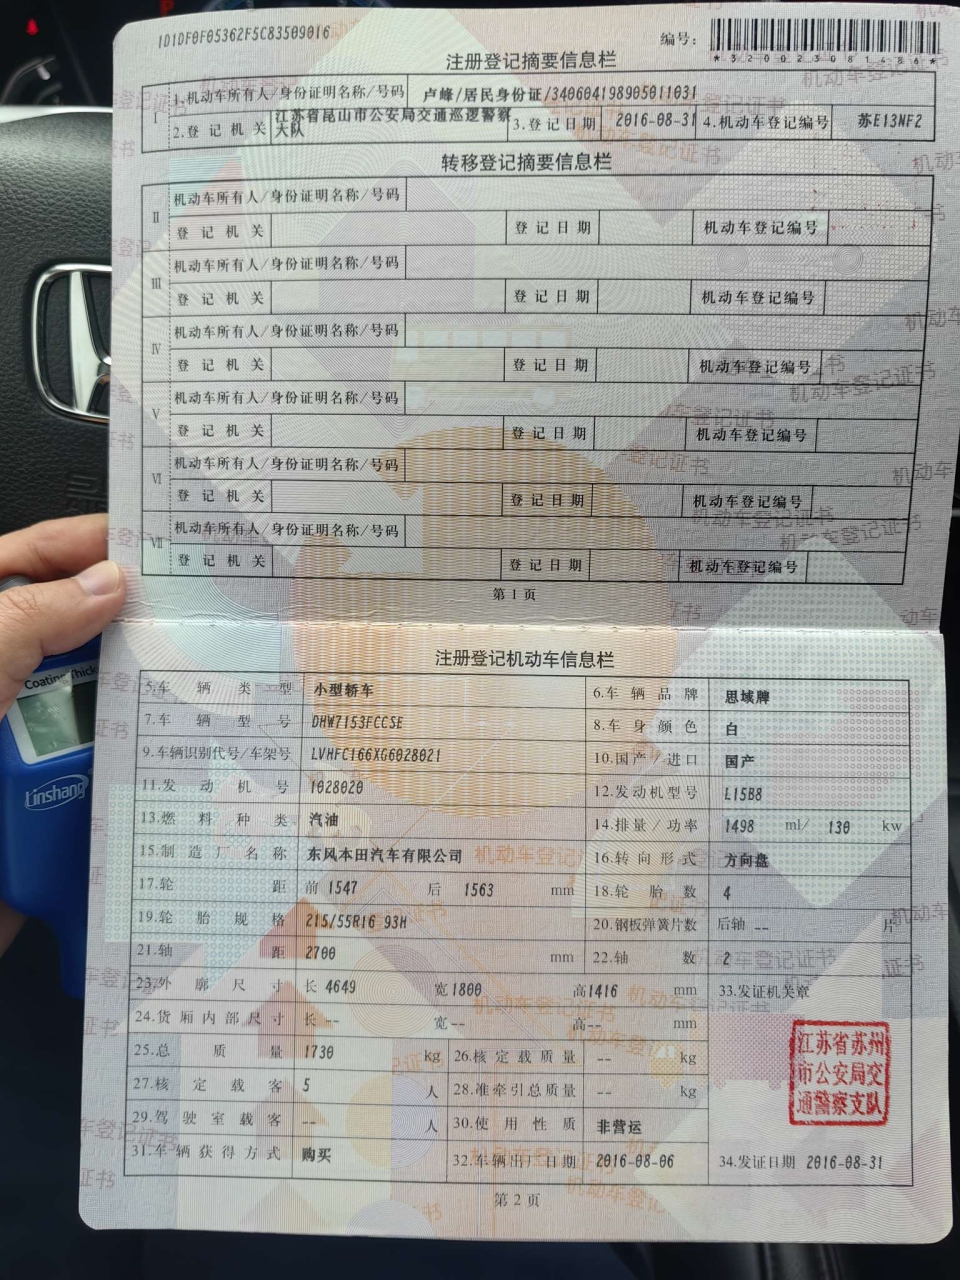 1D1DF0F05362F5C83509016
编号:
*320023081486*
注册登记摘要信息栏
I 1.机动车所有人/身份证明名称/号码 卢峰/居民身份证/340604198905011031
2.登记机关 江苏省昆山市公安局交通巡逻警察大队 3.登记日期 2016-08-31 4.机动车登记编号 苏E13NF2
转移登记摘要信息栏
II 机动车所有人/身份证明名称/号码
登记机关 登记日期 机动车登记编号
III 机动车所有人/身份证明名称/号码
登记机关 登记日期 机动车登记编号
IV 机动车所有人/身份证明名称/号码
登记机关 登记日期 机动车登记编号
V 机动车所有人/身份证明名称/号码
登记机关 登记日期 机动车登记编号
VI 机动车所有人/身份证明名称/号码
登记机关 登记日期 机动车登记编号
VII 机动车所有人/身份证明名称/号码
登记机关 登记日期 机动车登记编号
第1页
注册登记机动车信息栏
5.车辆类型 小型轿车 6.车辆品牌 思域牌
7.车辆型号 DHW7153FCCSE 8.车身颜色 白
9.车辆识别代号/车架号 LVHFC166XG6028021 10.国产/进口 国产
11.发动机号 1028020 12.发动机型号 L15B8
13.燃料种类 汽油 14.排量/功率 1498 ml/ 130 kw
15.制造厂名称 东风本田汽车有限公司 16.转向形式 方向盘
17.轮距 前 1547 后 1563 mm 18.轮胎数 4
19.轮胎规格 215/55R16 93H 20.钢板弹簧片数 后轴 -- 片
21.轴距 2700 mm 22.轴数 2
23.外廓尺寸 长 4649 宽 1800 高 1416 mm 33.发证机关章
24.货厢内部尺寸 长 -- 宽 -- 高 -- mm
25.总质量 1730 kg 26.核定载质量 -- kg
27.核定载客 5 人 28.准牵引总质量 -- kg
29.驾驶室载客 -- 人 30.使用性质 非营运
31.车辆获得方式 购买 32.车辆出厂日期 2016-08-06 34.发证日期 2016-08-31
江苏省苏州
市公安局交
通警察支队
第2页
Linshang